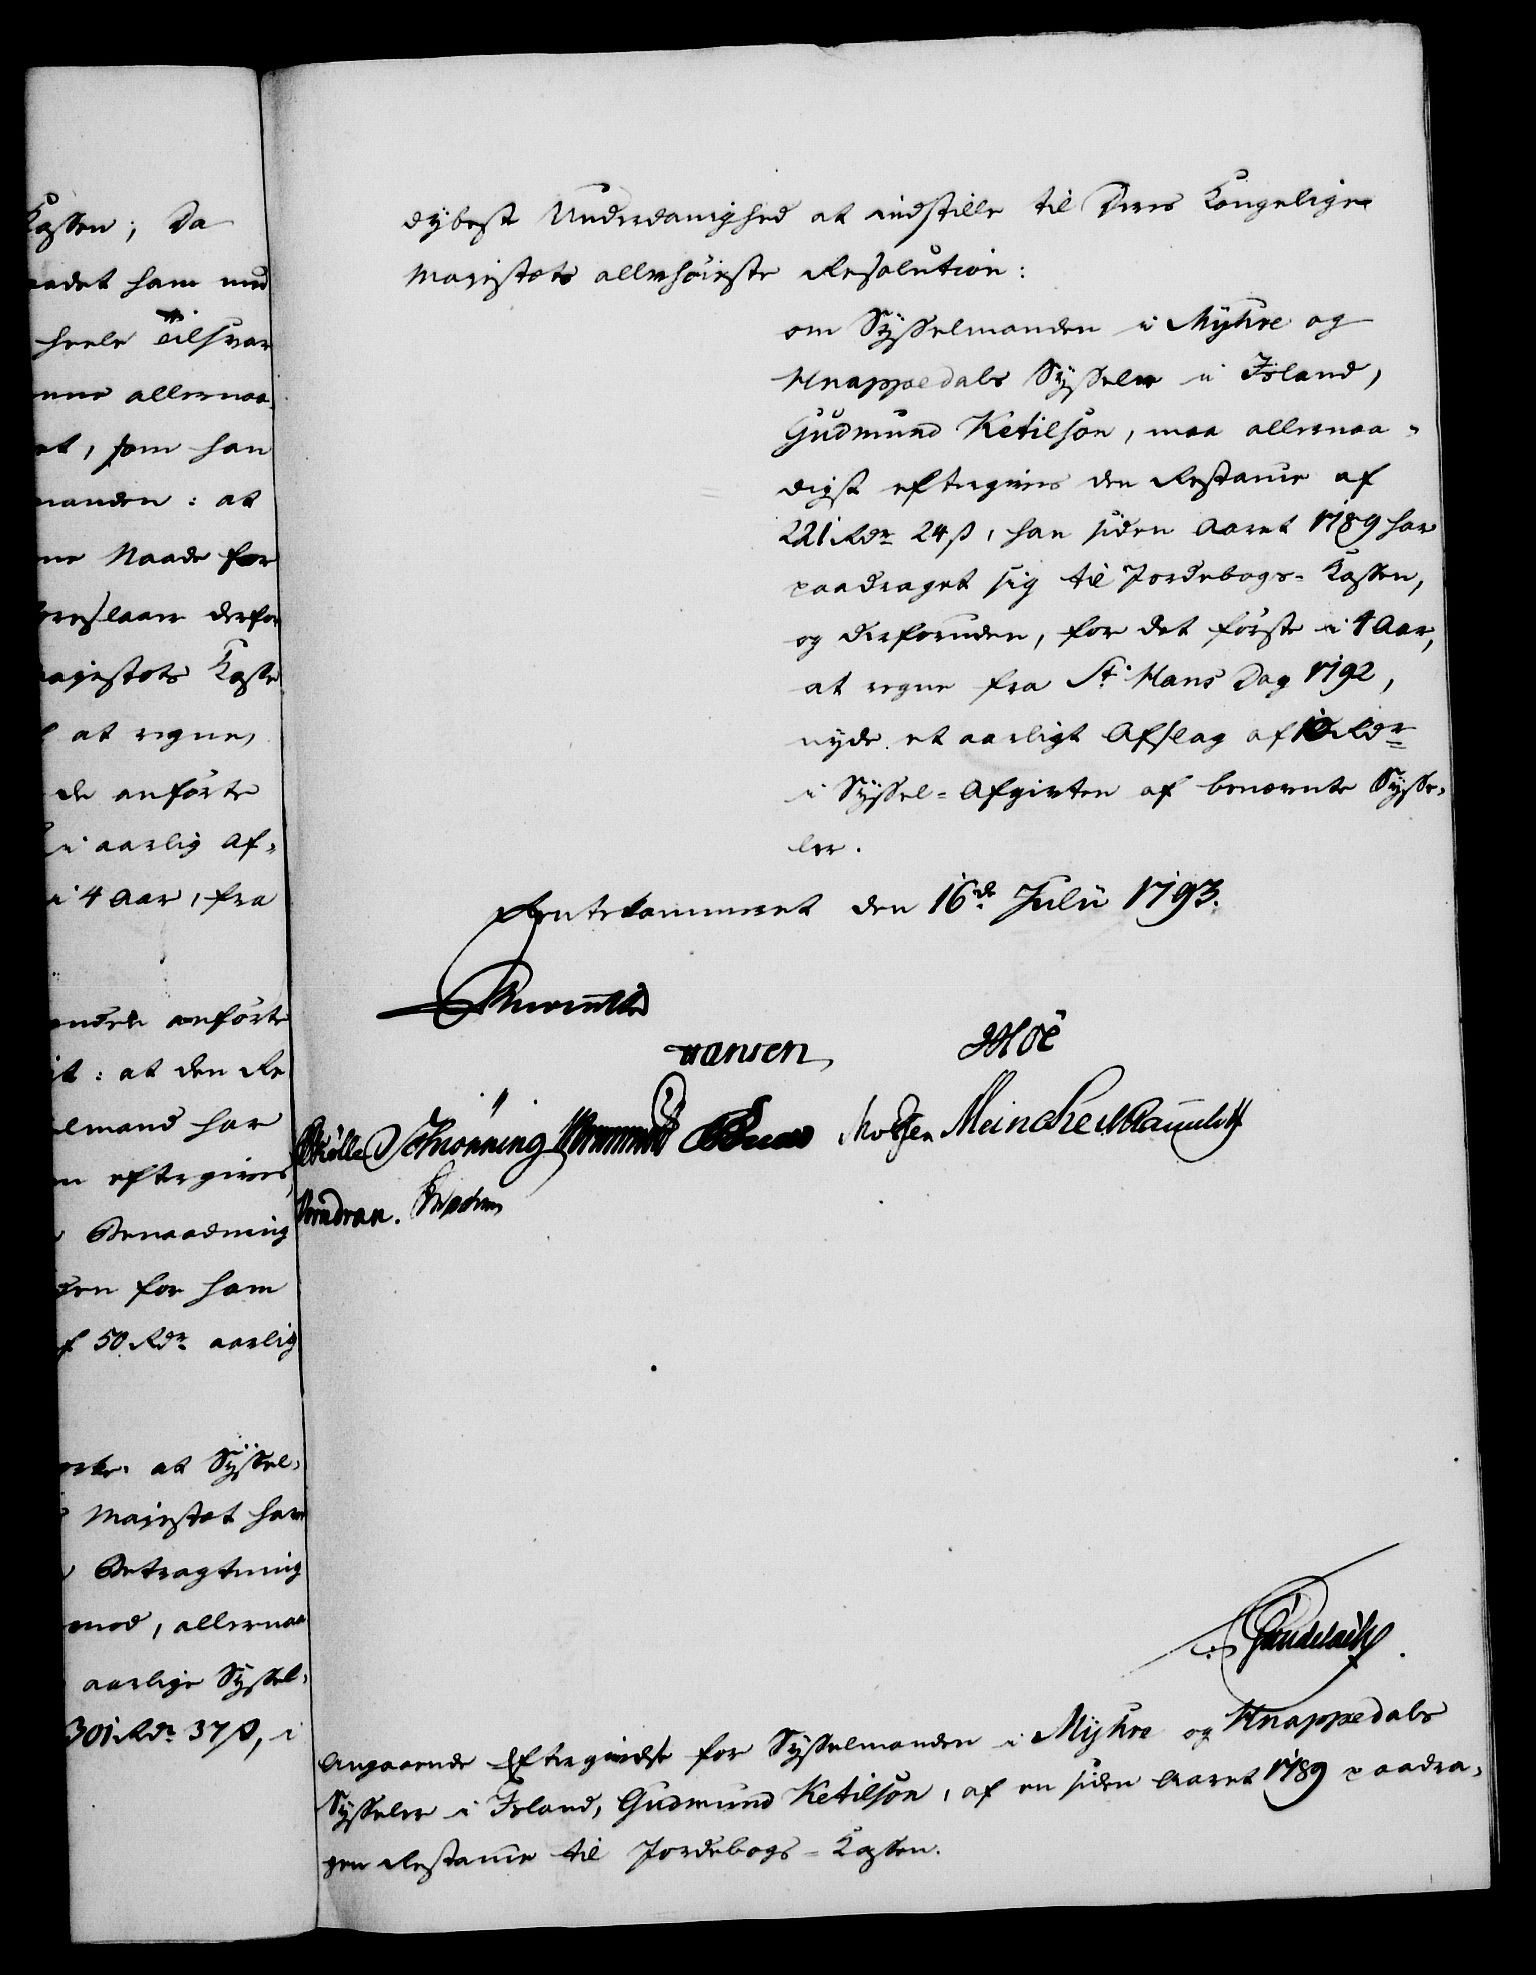 Kassen; Da
aadet ham med
heele Tilsvar
nne allernaa-
et, som han
manden: at
ne Naade for
oreslaae derfor
ajestæts Kasse
at regne,
de anförte
i aarlig Af-
i 4 Aar, fra
anförte
it: at den Re
elmand har
n eftergives,
Benaadning
for ham
f 50 Rdr aarlig
at Syssel-
Majestæt har
Betragtning
mod, allernaa
aarlige Syssel-
301 Rdr 37 ß, i
dybest Underdanighed at indstille til Deres Kongelige
Majestæts allerhöieste Resolution:
om Sysselmanden i Myhre og
Hnappedals Sysseler i Island,
Gudmund Ketilsön, maa allernaa-
digst eftergives den Restance af
221 Rdr 24 ß, han siden Aaret 1789 har
paadraget sig til Jordebogs-Kassen,
og derforuden, for det förste i 4 Aar,
at regne fra St. Hans Dag 1792,
nyde et aarligt Afslag af 10 Rdr
i Syssel-Afgivten af benævnte Sysse-
ler.
Rentekammeret den 16de Julii 1793.
Hansen
Schiönning
Meincke
Angaaende Eftergivelse for Sysselmanden i Myhre og Hnappedals
Sysseler i Island, Gudmund Ketilsön, af en siden Aaret 1789 paadra-
gen Restance til Jordebogs-Kassen.